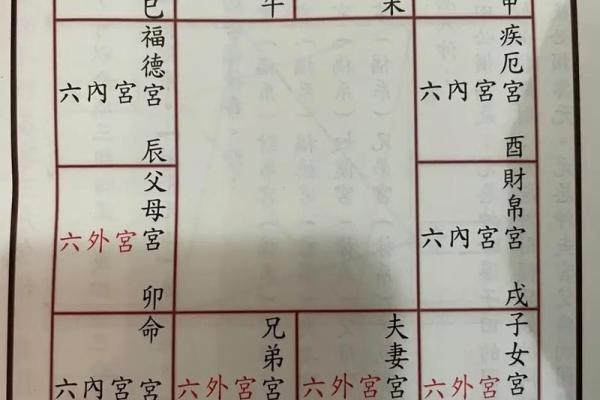 巳
午
未
申
福德宮
六內宮
辰
疾厄宮
六內宮
酉
父母宮
六外宮
卯
財帛宮
六內宮
戌
命宮
六內宮
兄弟宮
六外宮
夫妻宮
六外宮
子女宮
六外宮